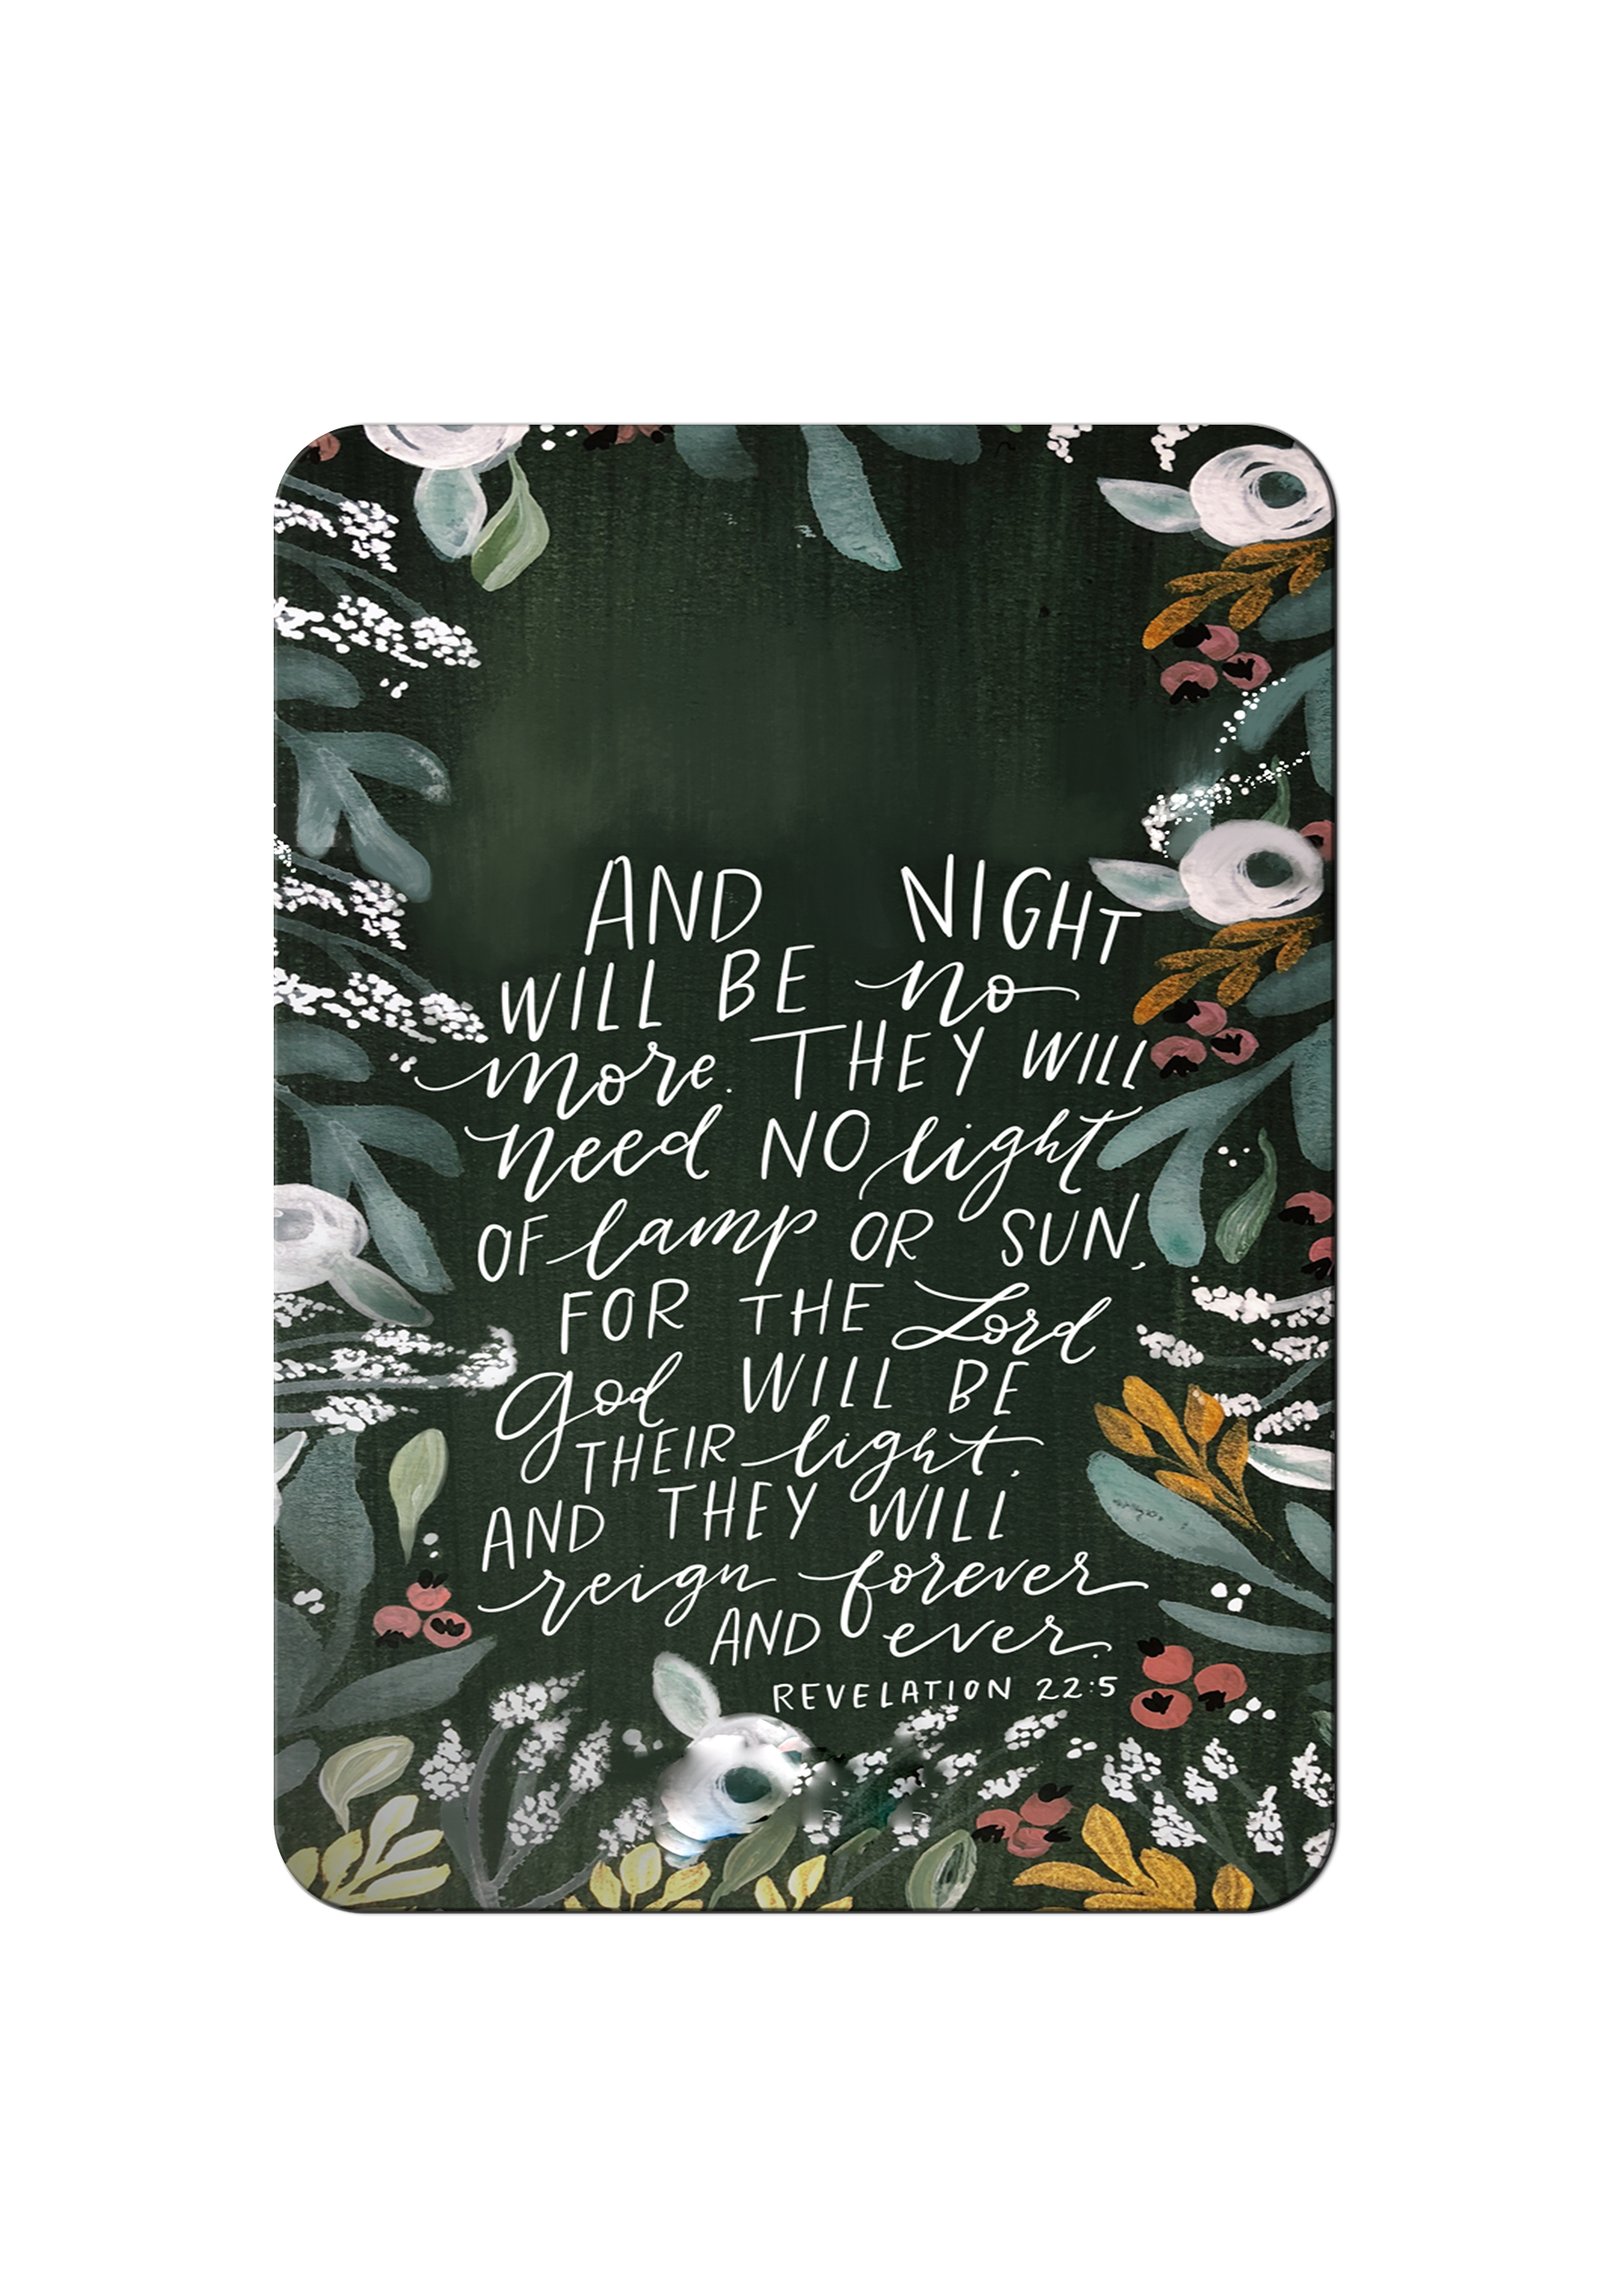 AND NIGHT
WILL BE no
more. THEY WILL
need NO light
OF lamp OR SUN,
FOR THE Lord
God WILL BE
THEIR light.
AND THEY WILL
reign forever
AND ever.
REVELATION 22:5